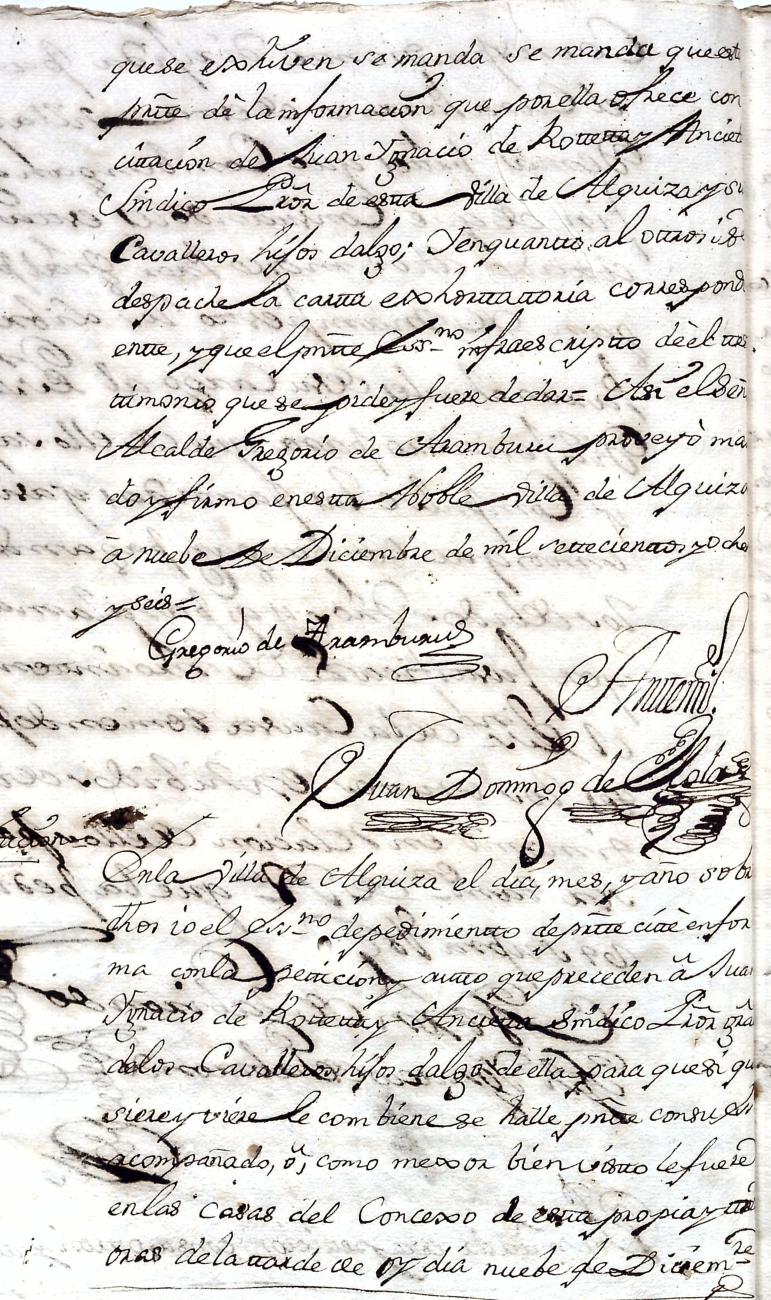 que se exhiven se manda se manda que esta
prtte dè la informacion que por ella ofrece con
cittacion de Juan Ygnacio de Rottetta y Anciet
Sindico Pror de esta villa de Alquiza y su
Cavalleros hijos dalgo; Y en quantto al ottrosi se
despache la cartta exhorttattoria correspond
entte, y que el prtte Essno infraescriptto dè el ttes
timonio que se pide y fuere de dar= Asi el Señ
Alcalde Gregorio de Aramburu proveyò man
do y firmo en esta Noble villa de Alquiza
à nuebe de Diciembre de mil settecienttos y oche
y seis=
Gregorio de Aramburu
Antemi
Juan Domingo de
En la villa de Alquiza el dia, mes, y año sobr
dhos io el Essno de pedimientto de prtte citè en for
ma con la petticion y autto que preceden â Juan
Ygnacio de Rottetta y Ancietta Sindico Pror gral
de los Cavalleros hijos dalgo de ella para que si qui
siere y viere le combiene se halle prtte con su
acompañado, ô, como mexor bien visto le fuere
en las casas del Concexo de esta propia y
oras de la tarde de oy dia nuebe de Diciemre